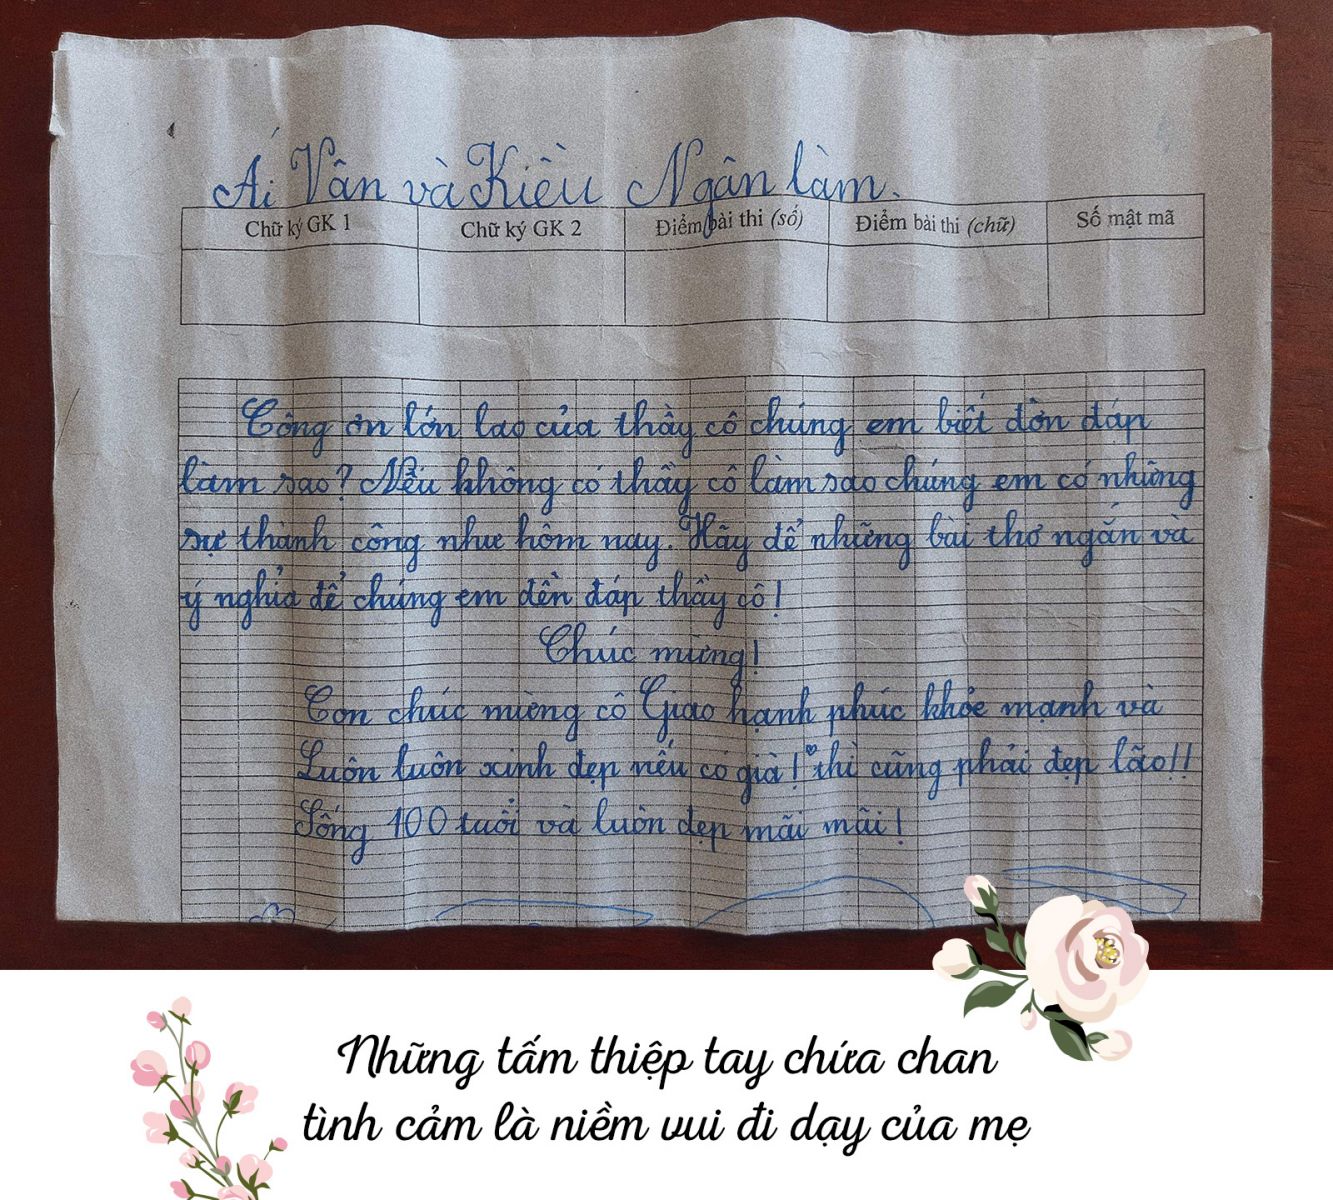 Ái Vân và Kiều Ngân làm.
Chữ ký GK 1 Chữ ký GK 2 Điểm bài thi (số) Điểm bài thi (chữ) Số mật mã
Công ơn lớn lao của thầy cô chúng em biết đền đáp
làm sao? Nếu không có thầy cô làm sao chúng em có những
sự thành công như hôm nay. Hãy để những bài thơ ngắn và
ý nghỉa để chúng em đền đáp thầy cô!
Chúc mừng!
Con chúc mừng cô Giao hạnh phúc khỏe mạnh và
Luôn luôn xinh đẹp nếu có già! thì cũng phải đẹp lão!!
Sống 100 tuổi và luôn đẹp mãi mãi!
Những tấm thiệp tay chứa chan
tình cảm là niềm vui đi dạy của mẹ